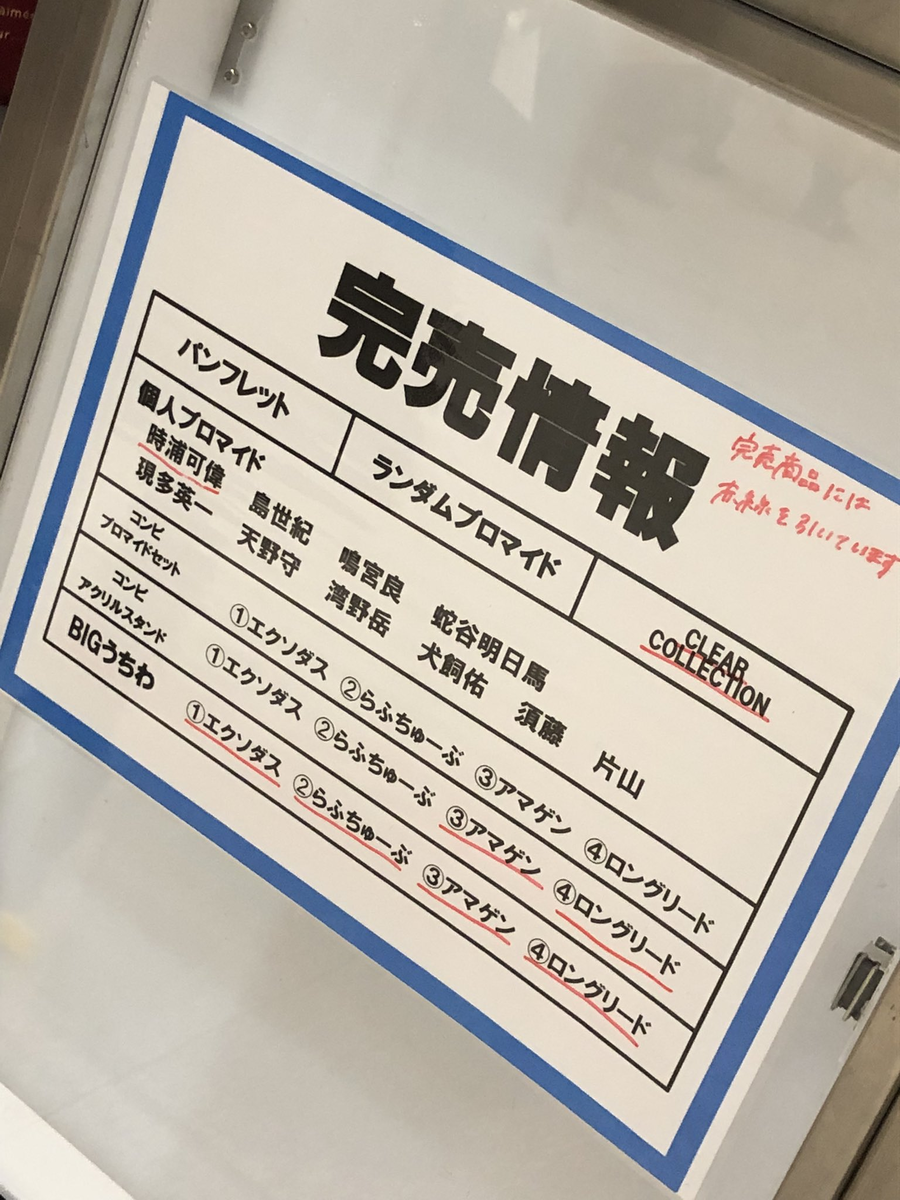 完売情報
完売商品には
赤線を引いています
パンフレット
ランダムブロマイド
CLEAR
COLLECTION
個人ブロマイド
時浦可偉 島世紀 鳴宮良 蛇谷明日馬
現多英一 天野守 湾野岳 犬飼佑 須藤 片山
コンビ
ブロマイドセット
①エクソダス ②らふちゅーぶ ③アマゲン ④ロングリード
コンビ
アクリルスタンド
①エクソダス ②らふちゅーぶ ③アマゲン ④ロングリード
BIGうちわ
①エクソダス ②らふちゅーぶ ③アマゲン ④ロングリード